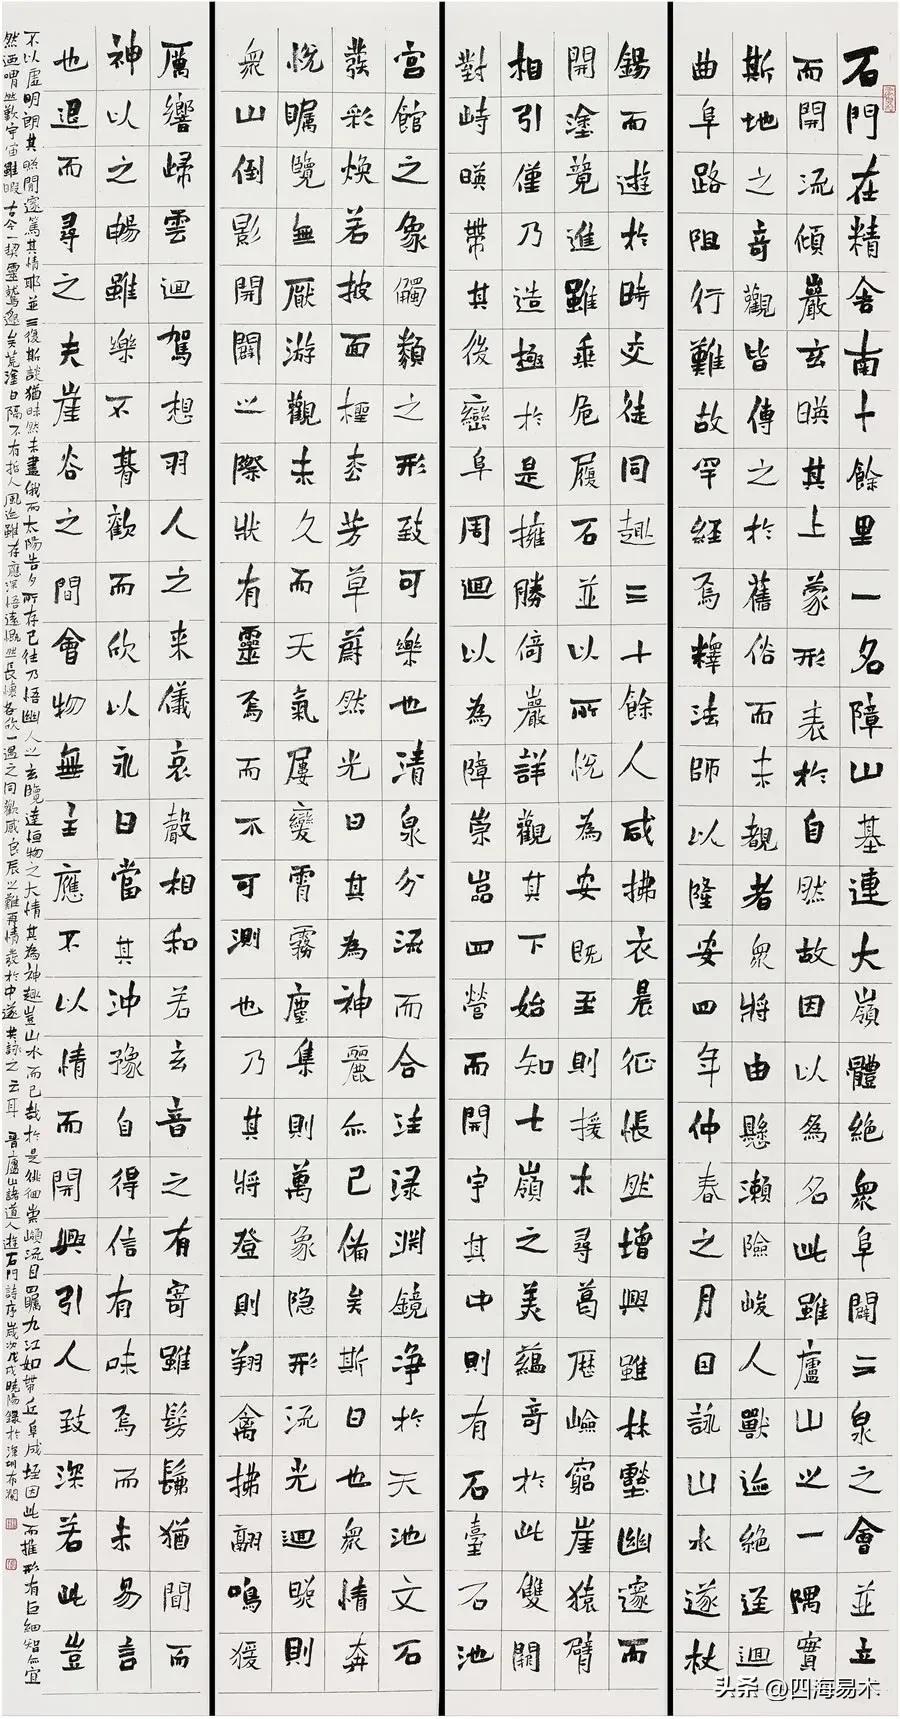 石門在精舍南十餘里一名障山基連大嶺體絕眾阜闢三泉之會並立
而開流傾巖玄暎其上蒙形表於自然故因以為名此雖廬山之一隅實
斯地之奇觀皆傳之於舊俗而未覩者眾將由懸瀨險峻人獸迹絕逕迴
曲阜路阻行難故罕經焉釋法師以隆安四年仲春之月因詠山水遂杖
錫而遊於時交徒同趣三十餘人咸拂衣晨征悵然增興雖林壑幽邃而
開塗競進雖乘危履石並以所悅為安既至則援木尋葛歷嶮窮崖猿臂
相引僅乃造極於是擁勝倚巖詳觀其下始知七嶺之美蘊奇於此雙闕
對峙暎帶其後巒阜周迴以為障崇嵓四營而開宇其中則有石臺石池
宮館之象觸類之形致可樂也清泉分流而合注淥淵鏡淨於天池文石
發彩煥若披面檉松芳草蔚然光目其為神麗亦已備矣斯日也眾情奔
悅矚覽無厭游觀未久而天氣屢變霄霧塵集則萬象隱形流光迴照則
眾山倒影開闢之際狀有靈焉而不可測也乃其將登則翔禽拂翮鳴猨
厲響歸雲迴駕想羽人之來儀哀聲相和若玄音之有寄雖髣髴猶聞而
神以之暢雖樂不朞歡而欣以永日當其沖豫自得信有味焉而未易言
也退而尋之夫崖谷之間會物無主應不以情而開興引人致深若此豈
不以虛明朗其照閒邃篤其情耶並三復斯談猶昧然未盡俄而太陽告夕所存已往乃悟幽人之玄覽達恒物之大情其為神趣豈山水而已哉於是徘徊崇嶺流目四矚九江如帶丘阜成垤因此而推形有巨細智亦宜
然迺喟然歎宇宙雖遐古今一契靈鷲邈矣荒途日隔不有哲人風迹誰存應深悟遠慨然長懷各欣一遇之同歡感良辰之難再情發於中遂共詠之云耳 晉廬山諸道人遊石門詩序歲次戊戌曉陽錄於深圳布瀾
头条 @四海易木